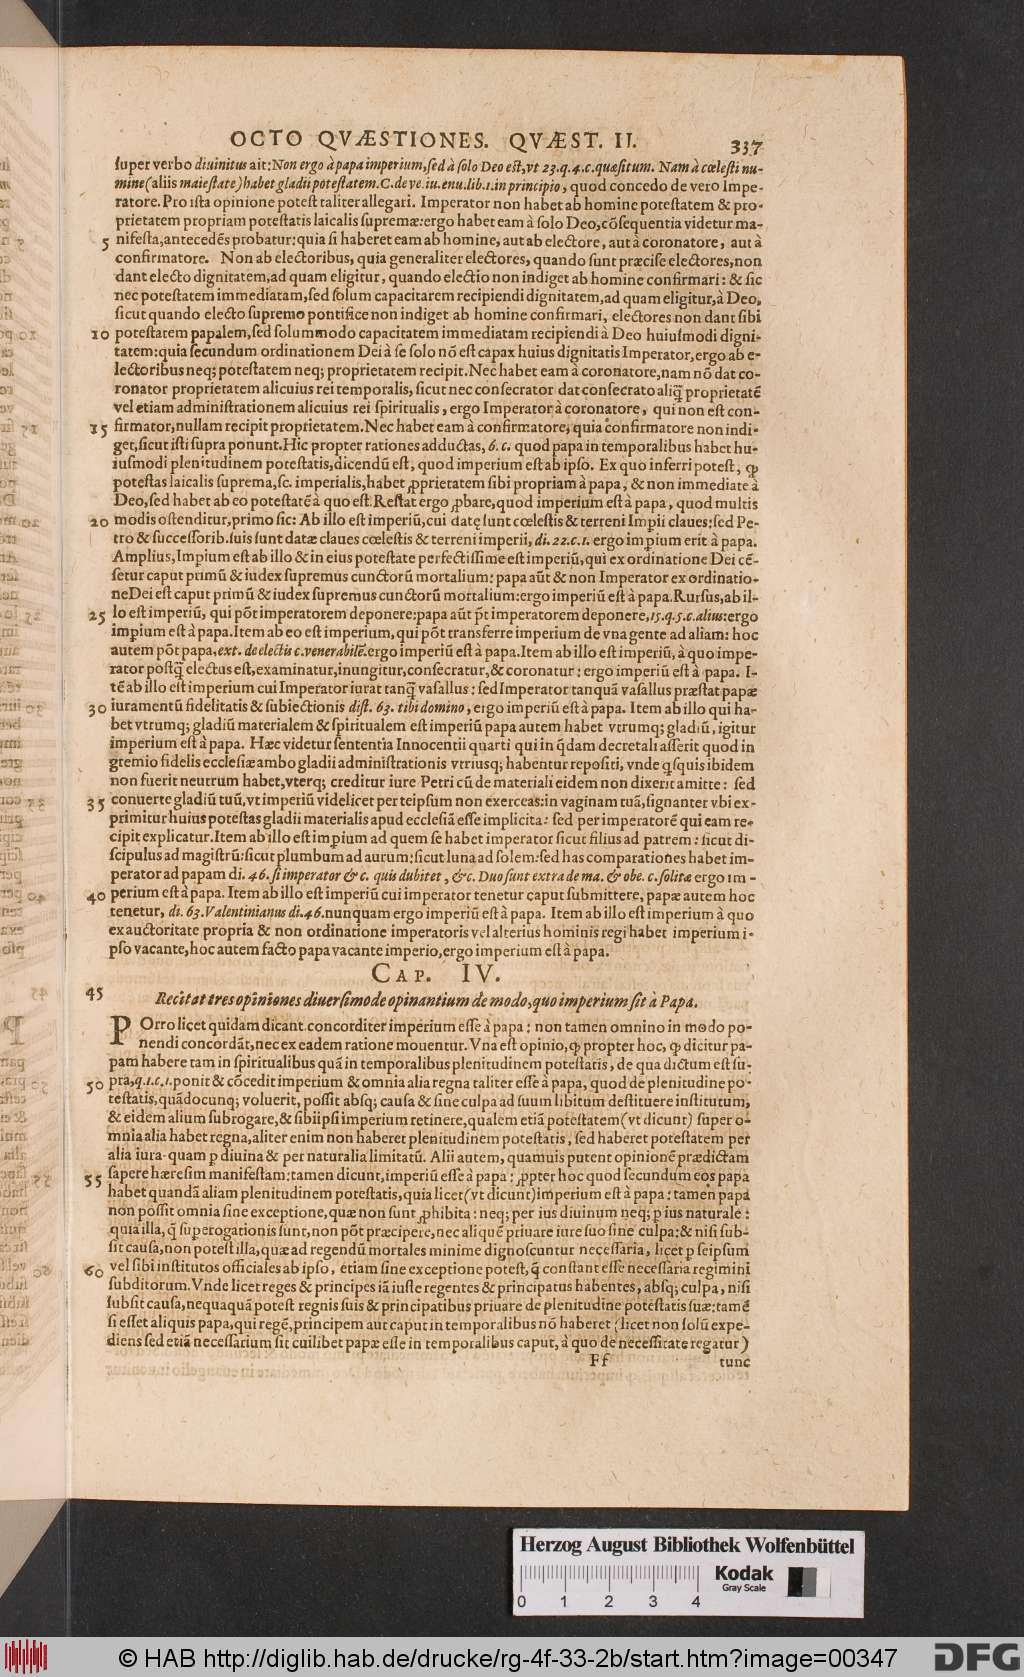 OCTO QVÆSTIONES. QVÆST. II. 337
ſuper verbo diuinitus ait: Non ergo à papa imperium, ſed à ſolo Deo eſt, vt 23.q.4.c.quæſitum. Nam à cœleſti nu-
mine (aliis maieſtate) habet gladii poteſtatem. C. de ve. iu. enu. lib. 1. in principio, quod concedo de vero Impe-
ratore. Pro iſta opinione poteſt taliter allegari. Imperator non habet ab homine poteſtatem & pro-
prietatem propriam poteſtatis laicalis ſupremæ: ergo habet eam à ſolo Deo, cõſequentia videtur ma-
5 nifeſta, antecedẽs probatur: quia ſi haberet eam ab homine, aut ab electore, aut à coronatore, aut à
confirmatore. Non ab electoribus, quia generaliter electores, quando ſunt præciſe electores, non
dant electo dignitatem, ad quam eligitur, quando electio non indiget ab homine confirmari: & ſic
nec poteſtatem immediatam, ſed ſolum capacitarem recipiendi dignitatem, ad quam eligitur, à Deo,
ſicut quando electo ſupremo pontifice non indiget ab homine confirmari, electores non dant ſibi
10 poteſtatem papalem, ſed ſolummodo capacitatem immediatam recipiendi à Deo huiuſmodi digni-
tatem: quia ſecundum ordinationem Dei à ſe ſolo nõ eſt capax huius dignitatis Imperator, ergo ab e-
lectoribus neq; poteſtatem neq; proprietatem recipit. Nec habet eam à coronatore, nam nõ dat co-
ronator proprietatem alicuius rei temporalis, ſicut nec conſecrator dat conſecrato aliq̃ proprietatẽ
vel etiam adminiſtrationem alicuius rei ſpiritualis, ergo Imperator à coronatore, qui non eſt con-
15 firmator, nullam recipit proprietatem. Nec habet eam à confirmatore, quia confirmatore non indi-
get, ſicut iſti ſupra ponunt. Hic propter rationes adductas, 6. c. quod papa in temporalibus habet hu-
iuſmodi plenitudinem poteſtatis, dicendũ eſt, quod imperium eſt ab ipſo. Ex quo inferri poteſt, ꝙ
poteſtas laicalis ſuprema, ſc. imperialis, habet ꝓprietatem ſibi propriam à papa, & non immediate à
Deo, ſed habet ab eo poteſtatẽ à quo eſt. Reſtat ergo ꝓbare, quod imperium eſt à papa, quod multis
20 modis oſtenditur, primo ſic: Ab illo eſt imperiũ, cui datę ſunt cœleſtis & terreni Impii claues: ſed Pe-
tro & ſucceſſorib. ſuis ſunt datæ claues cœleſtis & terreni imperii, di. 22. c. 1. ergo imꝑium erit à papa.
Amplius, Impium eſt ab illo & in eius poteſtate perfectiſſime eſt imperiũ, qui ex ordinatione Dei cẽ-
ſetur caput primũ & iudex ſupremus cunctorũ mortalium: papa aũt & non Imperator ex ordinatio-
ne Dei eſt caput primũ & iudex ſupremus cunctorũ mortalium: ergo imperiũ eſt à papa. Rurſus, ab il-
25 lo eſt imperiũ, qui põt imperatorem deponere: papa aũt p̃t imperatorem deponere, 15. q. 5. c. alius: ergo
imꝑium eſt à papa. Item ab eo eſt imperium, qui põt transferre imperium de vna gente ad aliam: hoc
autem põt papa, ext. de electis c. venerabilẽ. ergo imperiũ eſt à papa. Item ab illo eſt imperiũ, à quo impe-
rator poſtq̃ electus eſt, examinatur, inungitur, conſecratur, & coronatur: ergo imperiũ eſt à papa. I-
tẽ ab illo eſt imperium cui Imperator iurat tanq̃ vaſallus: ſed Imperator tanquã vaſallus præſtat papæ
30 iuramentũ fidelitatis & ſubiectionis diſt. 63. tibi domino, ergo imperiũ eſt à papa. Item ab illo qui ha-
bet vtrumq; gladiũ materialem & ſpiritualem eſt imperiũ papa autem habet vtrumq; gladiũ, igitur
imperium eſt à papa. Hæc videtur ſententia Innocentii quarti qui in q̃dam decretali aſſerit quod in
gremio fidelis eccleſiæ ambo gladii adminiſtrationis vtriusq; habentur repoſiti, vnde qſquis ibidem
non fuerit neutrum habet, vterq; creditur iure Petri cũ de materiali eidem non dixerit amitte: ſed
35 conuerte gladiũ tuũ, vt imperiũ videlicet per teipſum non exerceas: in vaginam tuã, ſignanter vbi ex-
primitur huius poteſtas gladii materialis apud eccleſiã eſſe implicita: ſed per imperatorẽ qui eam re-
cipit explicatur. Item ab illo eſt imꝑium ad quem ſe habet imperator ſicut filius ad patrem: ſicut di-
ſcipulus ad magiſtrũ: ſicut plumbum ad aurum: ſicut luna ad ſolem: ſed has comparationes habet im-
perator ad papam di. 46. ſi imperator & c. quis dubitet, &c. Duo ſunt extra de ma. & obe. c. ſolitæ ergo im-
40 perium eſt à papa. Item ab illo eſt imperiũ cui imperator tenetur caput ſubmittere, papæ autem hoc
tenetur, di. 63. Valentinianus di. 46. nunquam ergo imperiũ eſt à papa. Item ab illo eſt imperium à quo
ex auctoritate propria & non ordinatione imperatoris vel alterius hominis regi habet imperium i-
pſo vacante, hoc autem facto papa vacante imperio, ergo imperium eſt à papa.
CAP. IV.
45 Recitat tres opiniones diuerſimode opinantium de modo, quo imperium ſit à Papa.
POrro licet quidam dicant concorditer imperium eſſe à papa: non tamen omnino in modo po-
nendi concordãt, nec ex eadem ratione mouentur. Vna eſt opinio, ꝙ propter hoc, ꝙ dicitur pa-
pam habere tam in ſpiritualibus quã in temporalibus plenitudinem poteſtatis, de qua dictum eſt ſu-
50 pra, q. 1. c, 1. ponit & cõcedit imperium & omnia alia regna taliter eſſe à papa, quod de plenitudine po-
teſtatis, quãdocunq; voluerit, poſſit abſq; cauſa & ſine culpa ad ſuum libitum deſtituere inſtitutum,
& eidem alium ſubrogare, & ſibiipſi imperium retinere, qualem etiã poteſtatem (vt dicunt) ſuper o-
mnia alia habet regna, aliter enim non haberet plenitudinem poteſtatis, ſed haberet poteſtatem per
alia iura quam ꝑ diuina & per naturalia limitatũ. Alii autem, quamuis putent opinionẽ prædictam
55 ſapere hæreſim manifeſtam: tamen dicunt, imperiũ eſſe à papa: ꝓpter hoc quod ſecundum eos papa
habet quandã aliam plenitudinem poteſtatis, quia licet (vt dicunt) imperium eſt à papa: tamen papa
non poſſit omnia ſine exceptione, quæ non ſunt ꝓhibita: neq; per ius diuinum neq; ꝑ ius naturale:
quia illa, q̃ ſuꝑerogationis ſunt, non põt præcipere, nec aliquẽ priuare iure ſuo ſine culpa: & niſi ſub-
ſit cauſa, non poteſt illa, quæ ad regendũ mortales minime dignoſcuntur neceſſaria, licet ꝑ ſeipſum
60 vel ſibi inſtitutos officiales ab ipſo, etiam ſine exceptione poteſt, q̃ conſtant eſſe neceſſaria regimini
ſubditorum. Vnde licet reges & principes iã iuſte regentes & principatus habentes, abſq; culpa, niſi
ſubſit cauſa, nequaquã poteſt regnis ſuis & principatibus priuare de plenitudine poteſtatis ſuæ: tamẽ
ſi eſſet aliquis papa, qui regẽ, principem aut caput in temporalibus nõ haberet (licet non ſolũ expe-
diens ſed etiã neceſſarium ſit cuilibet papæ eſſe in temporalibus caput, à quo de neceſſitate regatur)
Ff tunc
Herzog August Bibliothek Wolfenbüttel
Kodak
Gray Scale
0 1 2 3 4
© HAB http://diglib.hab.de/drucke/rg-4f-33-2b/start.htm?image=00347
DFG